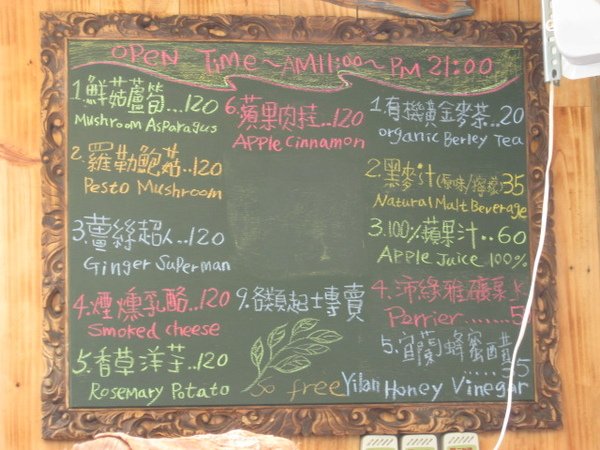 OPEN TIME~AM11:00~PM 21:00
1.鮮菇蘆筍...120
Mushroom Asparagus
2.羅勒鮑菇..120
Pesto Mushroom
3.薑絲超人..120
Ginger Superman
4.煙燻乳酪..120
Smoked cheese
5.香草洋芋..120
Rosemary Potato
6.蘋果肉桂.120
Apple Cinnamon
9.各類起士專賣
So free
1.有機黃金麥茶..20
organic Berley Tea
2.黑麥汁(原味/檸檬)35
Natural Malt Beverage
3.100%蘋果汁..60
Apple Juice 100%
4.沛綠雅礦泉水
Perrier.......5
5.宜蘭蜂蜜醋
.....35
Yilan Honey Vinegar